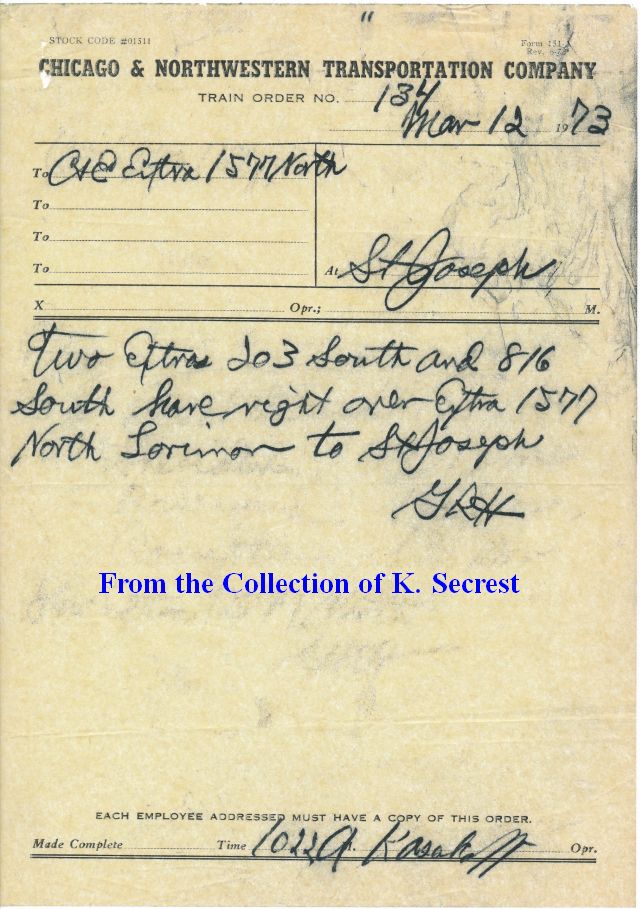 STOCK CODE #01511
Form 151
Rev.
CHICAGO & NORTHWESTERN TRANSPORTATION COMPANY
TRAIN ORDER NO. 134
Mar 12 1973
To C&E Extra 1577 North
To
To
To
At St Joseph
X Opr.; M.
Two Extras 203 South and 816
South have right over Extra 1577
North Lorimor to St Joseph
From the Collection of K. Secrest
EACH EMPLOYEE ADDRESSED MUST HAVE A COPY OF THIS ORDER.
Made Complete Time 1022 A M. Opr.